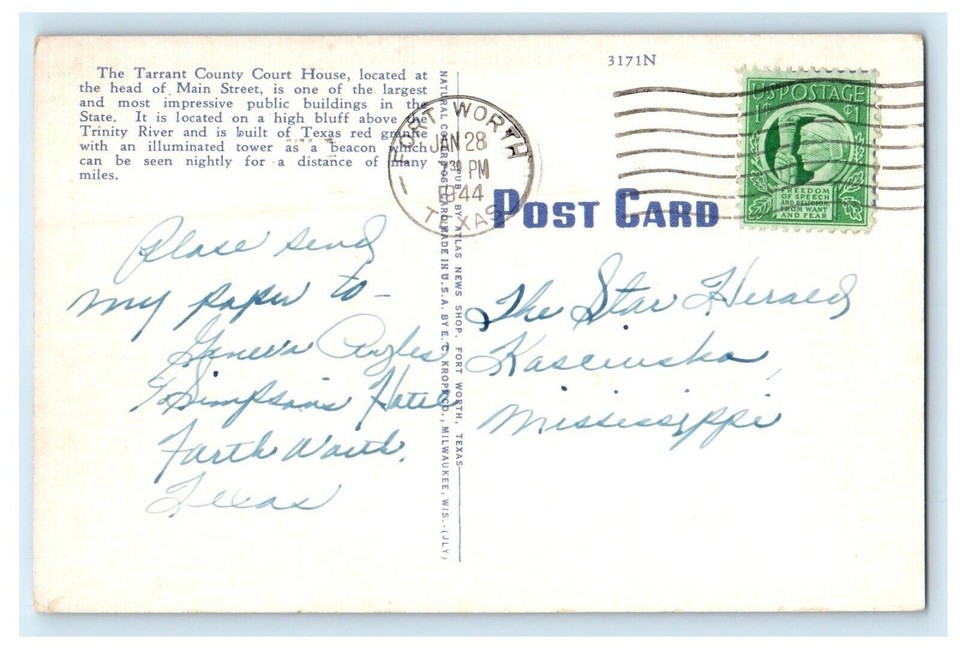 The Tarrant County Court House, located at
the head of Main Street, is one of the largest
and most impressive public buildings in the
State. It is located on a high bluff above the
Trinity River and is built of Texas red granite
with an illuminated tower as a beacon which
can be seen nightly for a distance of many
miles.
3171N
FORT WORTH
JAN 28
7 30 PM
1944
TEXAS
U.S. POSTAGE
1¢ ¢1
FREEDOM
OF SPEECH
AND RELIGION
FROM WANT
AND FEAR
POST CARD
Please send
my paper to -
Geneva
% Simpsons Hotel
Forth Worth.
Texas
NATURAL COLOR POST CARD MADE IN U.S.A. BY E. C. KROPP CO., MILWAUKEE, WIS.-(JLY)
PUB. BY ATLAS NEWS SHOP, FORT WORTH, TEXAS
The Star Herald
Kosciusko,
Mississippi